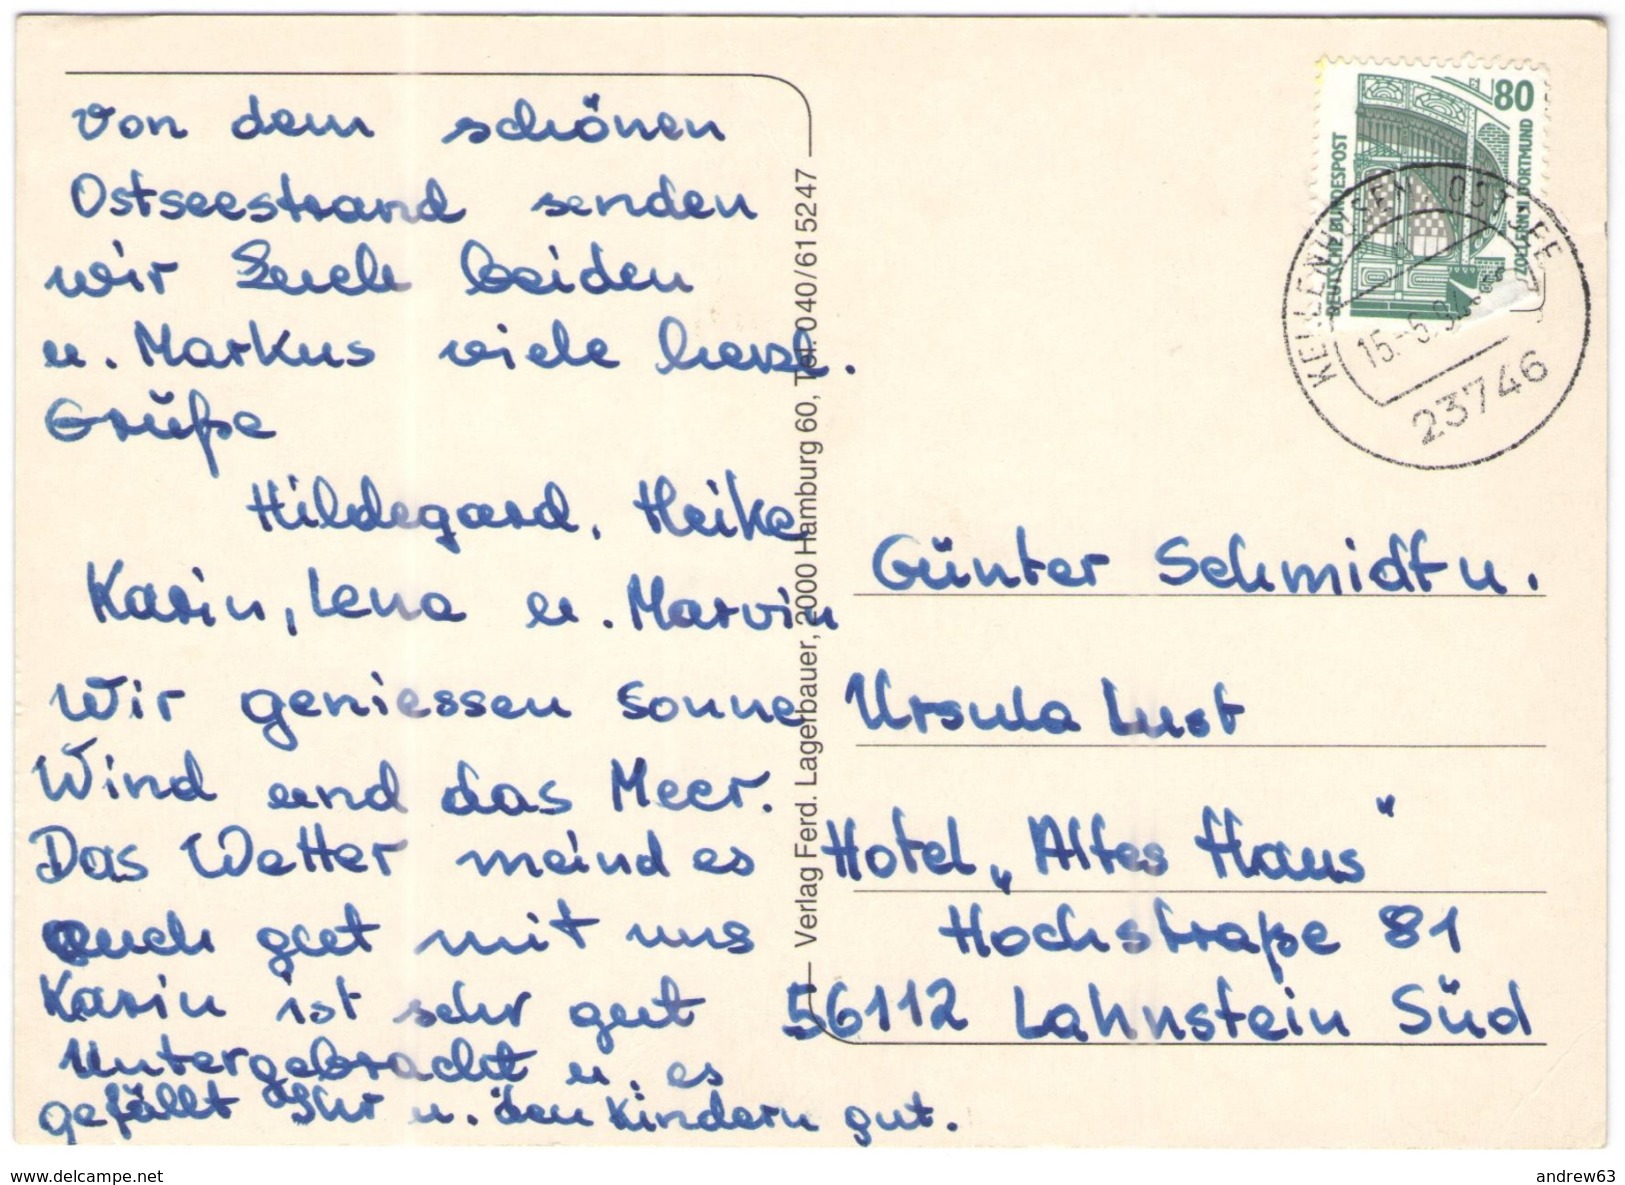 Von dem schönen
Ostseestrand senden
wir Euch beiden
u. Markus viele herzl.
Grüße
Hildegard, Heike
Karin, Lena u. Marvin
Wir geniessen Sonne
Wind und das Meer.
Das Wetter meind es
auch gut mit uns
Karin ist sehr gut
Untergebracht u. es
gefällt Ihr u. den Kindern gut.
Verlag Ferd. Lagerbauer, 2000 Hamburg 60, Tel. 040/615247
80
DEUTSCHE BUNDESPOST
ZOLLERN II DORTMUND
KELLENHUSEN OSTSEE
23746
Günter Schmidt u.
Ursula Lust
Hotel „Altes Haus"
Hochstraße 81
56112 Lahnstein Süd
www.delcampe.net
andrew63